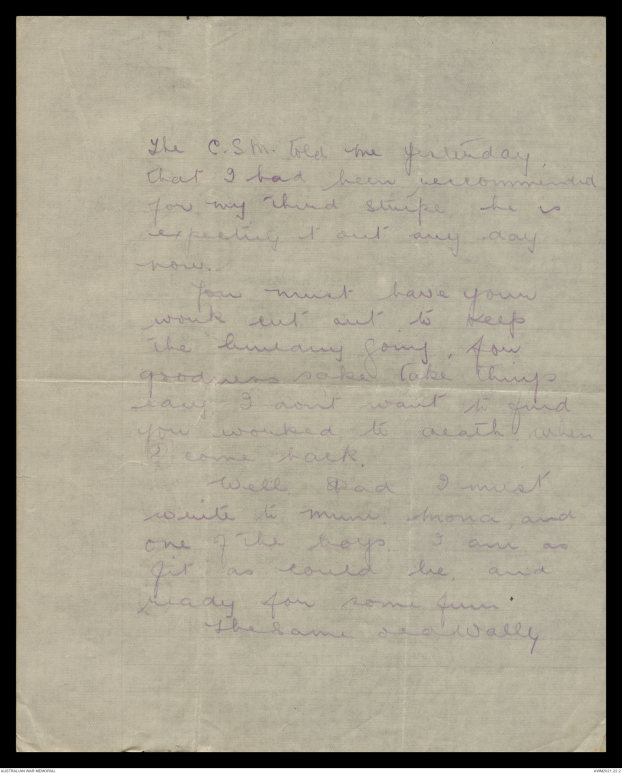 The C.S.M. told me yesterday,
that I had been reccommended
for my third stripe, he is
expecting it out any day
now.
You must have your
work cut out to keep
the building going, for
goodness sake take things
easy I don't want to find
you worked to death when
I come back.
Well Dad I must
write to mum, Mona, and
one of the boys. I am as
fit as could be, and
ready for some fun.
The same old Wally
AUSTRALIAN WAR MEMORIAL